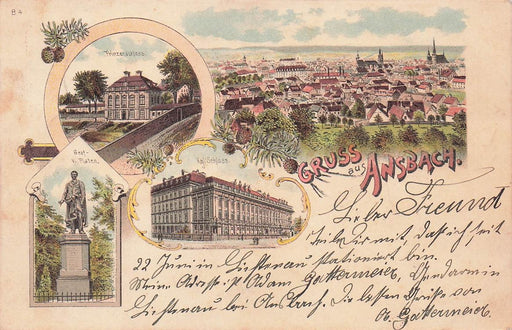 84
Prinzenschloss.
Graf-
v. Platen.
Kgl. Schloss.
GRUSS
aus
ANSBACH.
Lieber Freund
Teile Dir mit, daß ich seit
22 Juni in Lichtenau stationiert bin.
Meine Adreße: Adam Gattermeier, Gendarm in
Lichtenau bei Ansbach. Die besten Grüße von
A. Gattermeier.